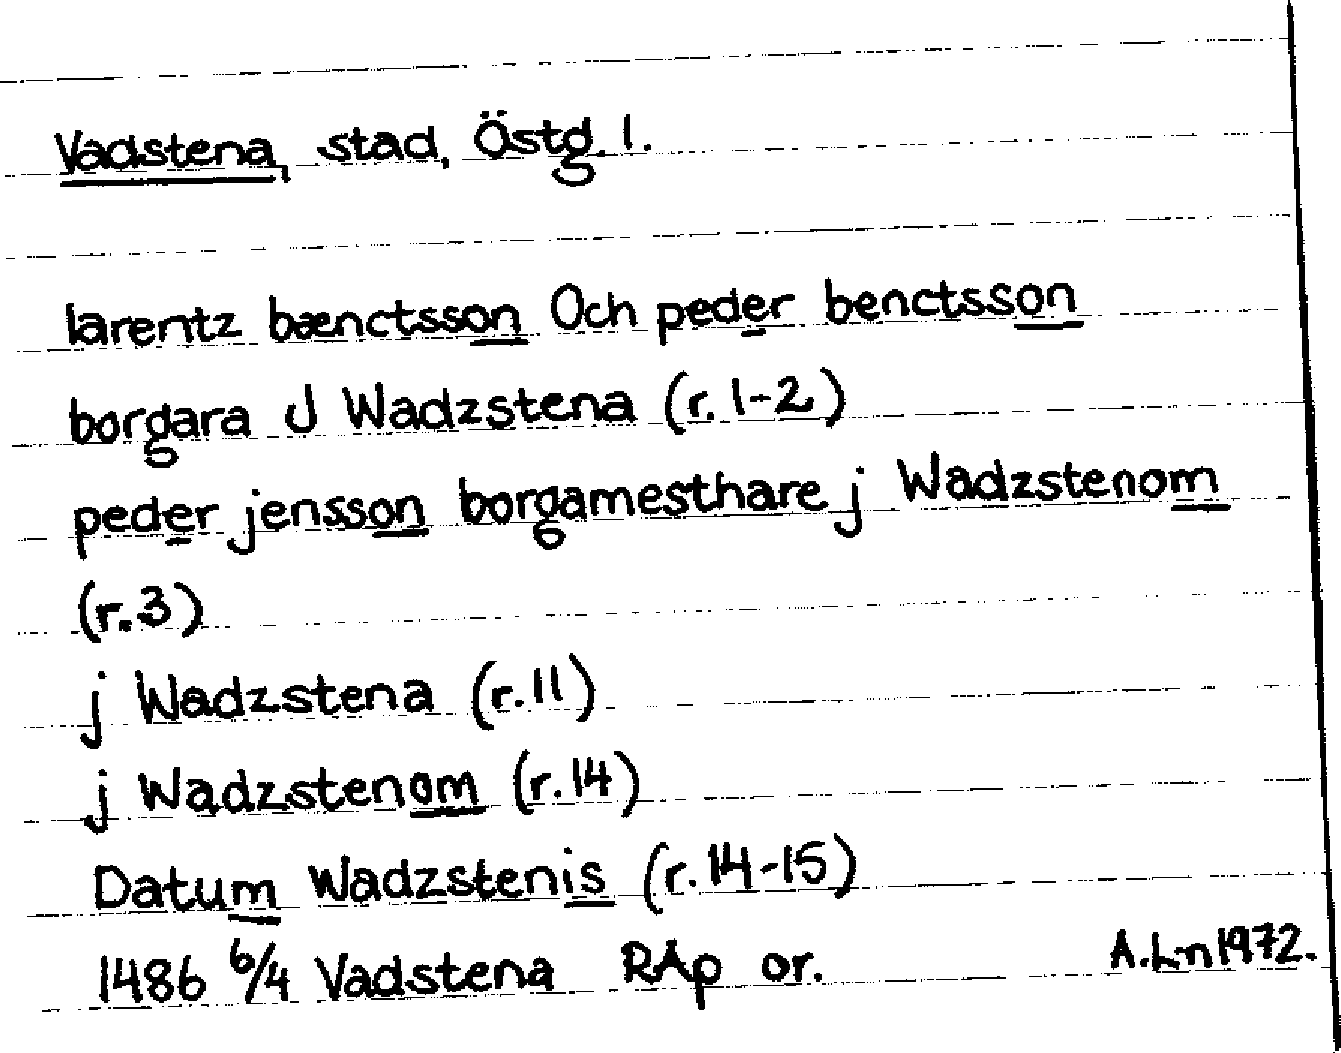 Vadstena, stad, Östg. l.
larentz bænctsson Och peder benctsson
borgara J Wadzstena (r. 1-2)
peder jensson borgamesthare j Wadzstenom
(r.3)
j Wadzstena (r.11)
j Wadzstenom (r.14)
Datum Wadzstenis (r.14-15)
1486 6/4 Vadstena RAp or. A.Ln 1972.